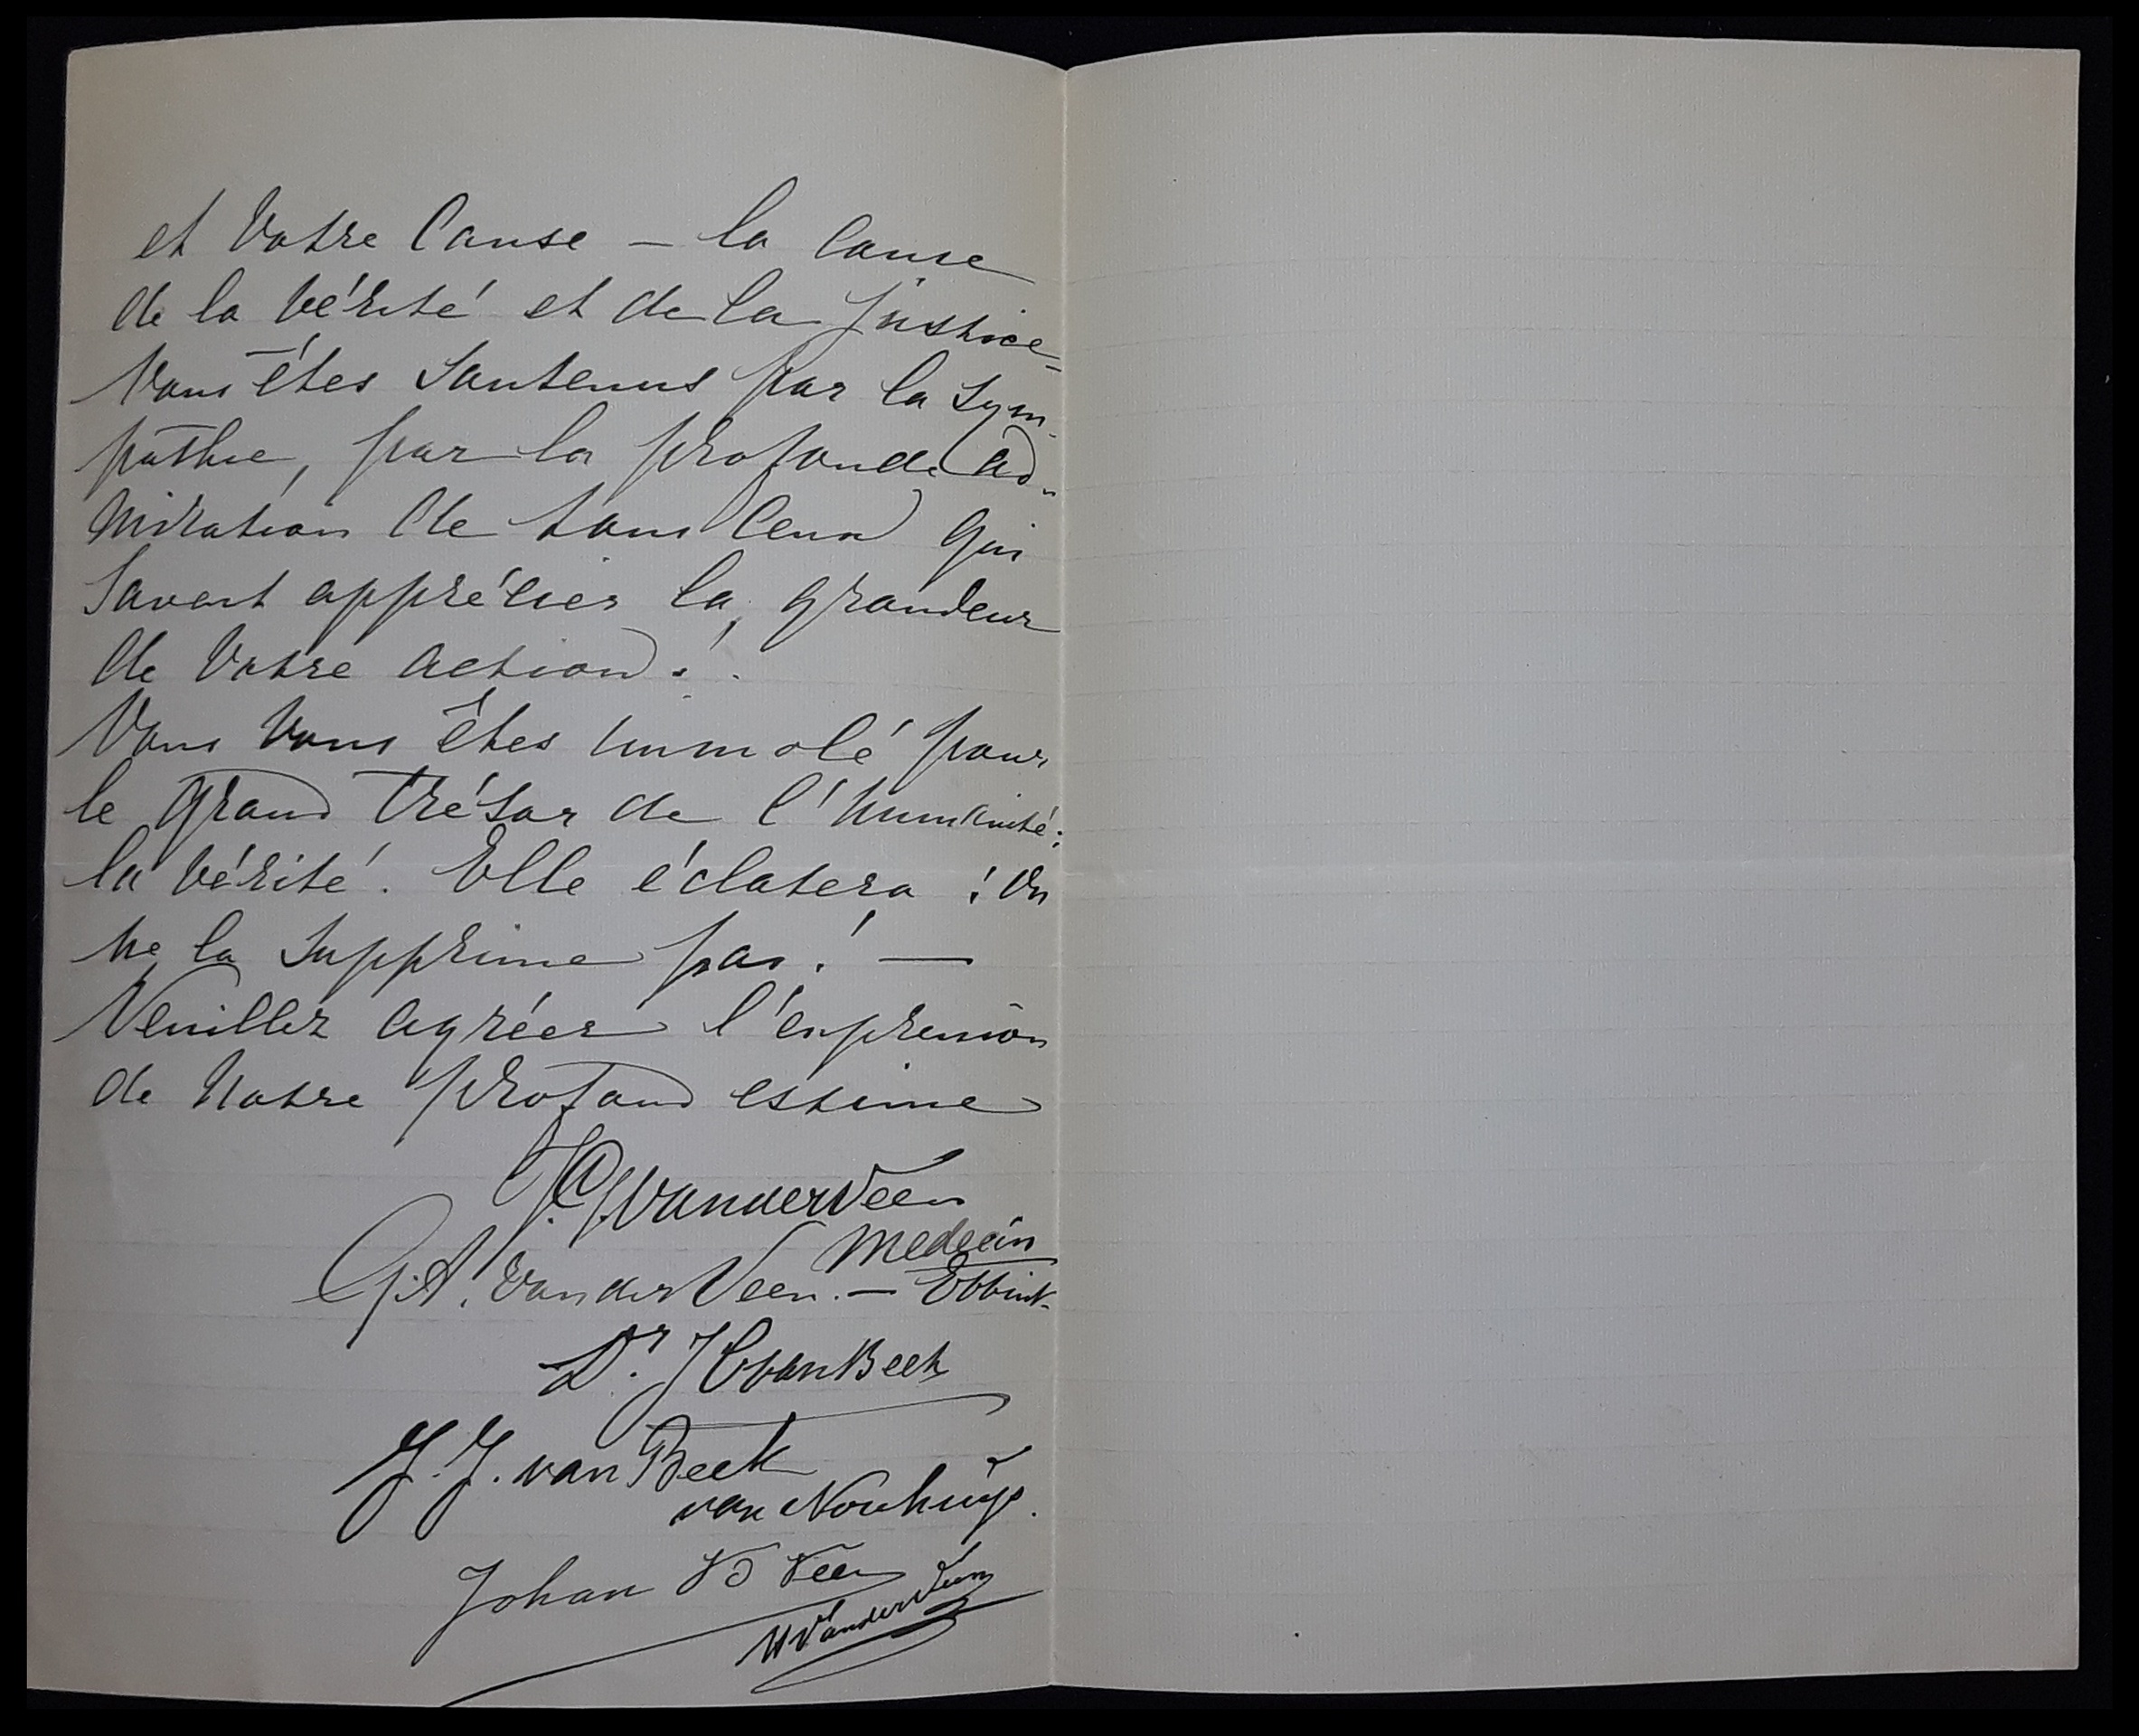 et votre Cause — la Cause
de la vérité et de la justice
Vous êtes soutenus par la sym-
pathie, par la profonde ad-
miration de tous Ceux qui
Savent apprécier la grandeur
de votre action!
Vous vous êtes immolé pour
le grand trésor de l'humanité:
la vérité. Elle éclatera! On
ne la supprime pas! —
Veuillez agréer l'expression
de notre profond estime
J. C. J. van der Veen
Medecin
G. A. van der Veen. — Ebbink
Dr. J C van Beek
J. J. van Beek
van Nouhuijs.
Johan vd Veen
H van der Veen